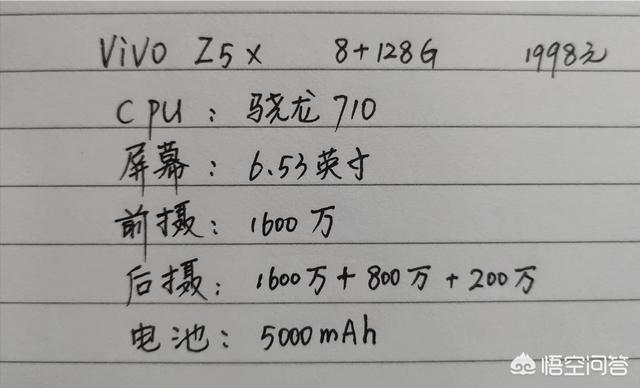 ViVO Z5x 8+128G 1998元
CPU：骁龙710
屏幕：6.53英寸
前摄：1600万
后摄：1600万+800万+200万
电池：5000mAh
悟空问答